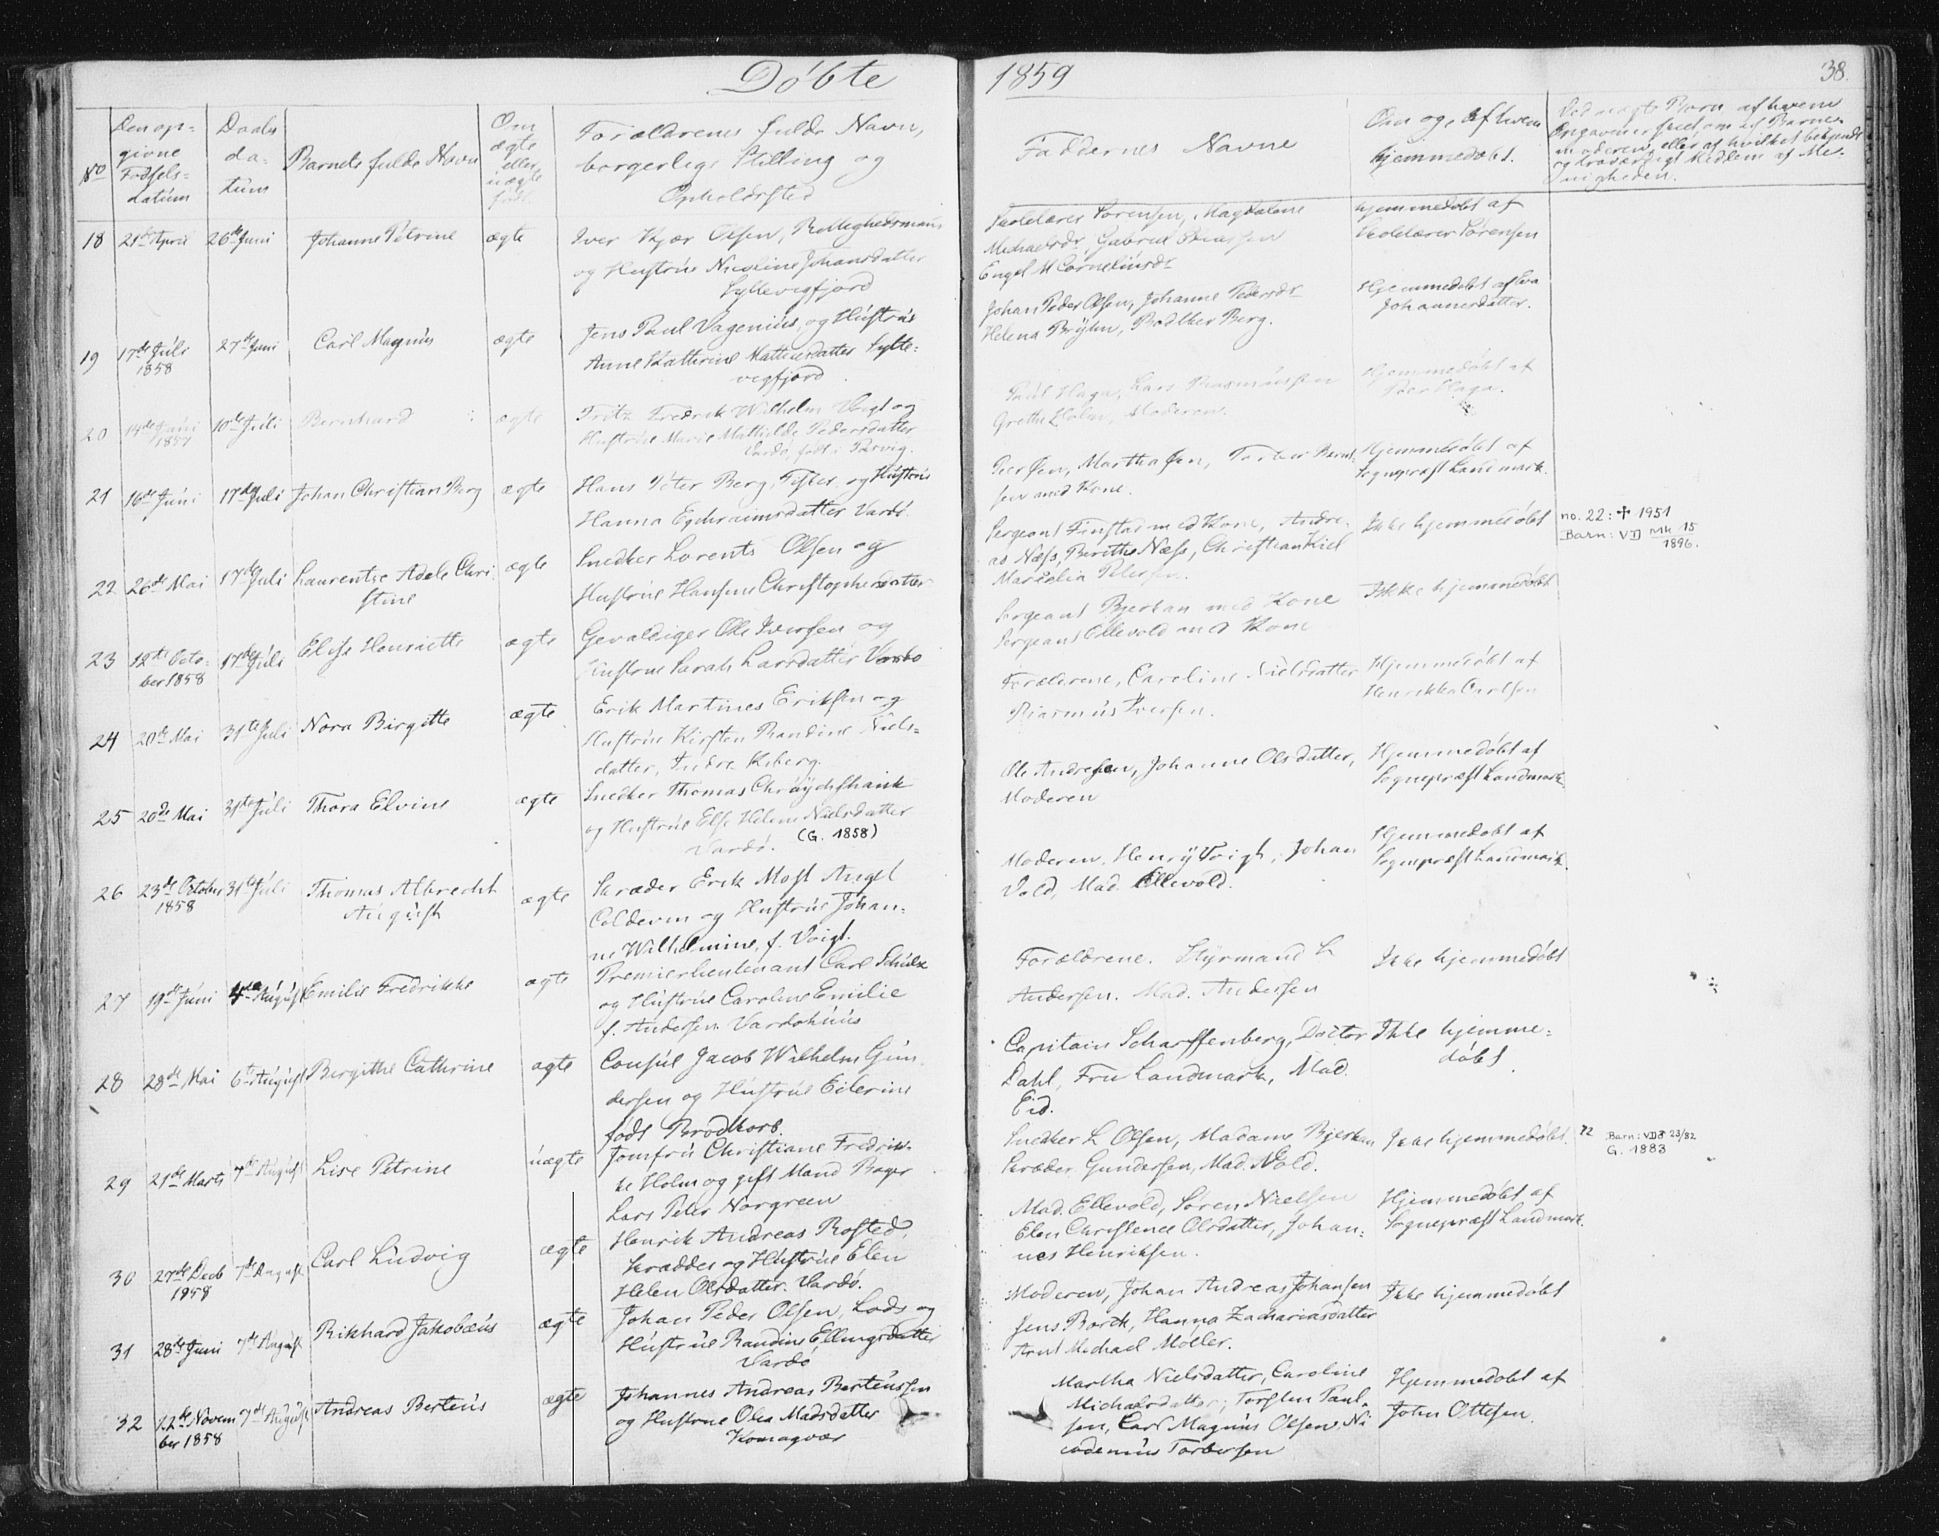 Döbte 1859 38.
No
Den op-
givne
Fødsels-
datum
Daabs
da-
tum
Barnets fulde Navn
Om
ægte
eller
uægte
født
Forældrenes fulde Navn,
borgerlige Stilling og
Opholdssted
Faddernes Navne
Om og af hvem
hjemmedøbt.
18 21de April 26de Juni Johanne Petrine ægte
Iver Kjær Olsen, Rettighedsmand
og Hustrue Nicoline Johansdatter
Syltevigfjord
Skolelærer Sørensen, Magdalene
Michaelsdr. Gabriel
Engel M Corneliusdr
hjemmedøbt af
Skolelærer Sørensen
19 17de Juli 1858 27de Juni Carl Magnus ægte
Jens Paul Vagenius, og Hustrue
Anne Kathrine Mathiesdatter Sylte-
vigfjord
Johan Peder Olsen, Johanne Pedersdr
Helena Bryhn, Brodtker Berg.
Hjemmedøbt af Eva
Johannesdatter.
20 14de Juni 1857 10de Juli Bernhard ægte
Fritz Fredrik Wilhelm Voigt og
Hustrue Marie Mathilde Pedersdatter
Vardø, født i Pasvig.
Paul Haga, Lars Rasmussen
Grethe Holm, Moderen.
Hjemmedøbt af
Peer Haga.
21 16de Juni 17de Juli Johan Christian Berg ægte
Hans Peter Berg, Fisker, og Hustrue
Hanna Ephraimsdatter Vardø.
Peer Øen, Martha Øen, Torber Bernt-
sen med Kone.
Hjemmedøbt af
Sognepræst Landmark.
22 26de Mai 17de Juli Laurentze Adele Chri-
stine ægte
Snedker Lorents Olsen og
Hustrue Hansine Christophersdatter
Sergeant Finstad med Kone, Andre-
as Næss, Berithe Næss, Christian Kiel
Marselia Petersen.
Ikke hjemmedøbt
no. 22: ✝ 1951
Barn: VD Mk 15
1896.
23 12te Octo-
ber 1858 17de Juli Elise Henriette ægte
Gevaldiger Ole Iversen og
Hustrue Sarah Larsdatter Vardø
Sergeant Bjerkan med Kone
Sergeant Ellevold med Kone
Ikke hjemmedøbt
24 20de Mai 31te Juli Nora Birgitte ægte
Erik Martines Eriksen og
Hustrue Kirsten Randine Niels-
datter, Indre Kiberg.
Forældrene, Caroline Nielsdatter
Rasmus Iversen.
Hjemmedøbt af
Henrikka Carlsen
25 20de Mai 31te Juli Thora Elvine ægte
Snedker Thomas Chröydshank
og Hustrue Else Helene Nielsdatter
Vardø. (G. 1858)
Ole Andresen, Johanne Olsdatter,
Moderen
Hjemmedøbt af
Sognepræst Landmark
26 23de October
1858 31te Juli Thomas Albrecht
August ægte
Skræder Erik Most Angel
Coldevin og Hustrue Johan-
ne Wilhelmine, f. Voigt.
Moderen, Henry Voigt, Johan
Vold, Mad. Ellevold.
Hjemmedøbt af
Sognepræst Landmark
27 19de Juni 4de August Emilie Fredrikke ægte
Premierlieutenant Carl Schulze
og Hustrue Caroline Emilie
f. Andersen Vardøhuus
Forældrene. Styrmand L
Andersen. Mad. Andersen
Ikke hjemmedøbt
28 28de Mai 6te August Bergithe Cathrine ægte
Consul Jacob Wilhelm Gun-
dersen og Hustrue Eilerine
født Brodtkorb.
Capitain Scharffenberg, Doctor
Dahl, Fru Landmark, Mad.
Eid.
Ikke hjemme-
døbt
29 21de Marts 7de August Lise Petrine uægte
Jomfru Christiane Fredrik-
ke Holm og gift Mand Bager
Lars Peter Norgreen
Snedker L Olsen, Madame Bjerkan
Skræder Gundersen, Mad. Vold.
Ikke hjemmedøbt
Barn: VD8 23/82
G. 1883
30 27de Decb
1858 7de August Carl Ludvig ægte
Henrik Andreas Rosted,
Skrædder og Hustrue Elen
Helen Olsdatter. Vardø.
Mad. Ellevold, Søren Nielsen
Elen Christence Olsdatter, Johan-
nes Henriksen.
Hjemmedøbt af
Sognepræst Landmark.
31 28de Juni 7de August Rikhard Jakobæus ægte
Johan Peder Olsen, Lods og
Hustrue Randine Ellingsdatter
Vardø
Moderen, Johan Andreas Johansen
Jens Borck, Hanna Zachariasdatter
Arnt Michael Møller.
Ikke hjemmedøbt
32 12te Novem
ber 1858 7de August Andreas Berteus ægte
Johannes Andreas Berteussen
og Hustrue Olea Madsdatter
Komagvær
Martha Nielsdatter, Caroline
Michaelsdatter, Torsten Paul-
sen, Carl Magnus Olsen, Ni
codemus Torbersen
Hjemmedøbt af
John Ottesen.